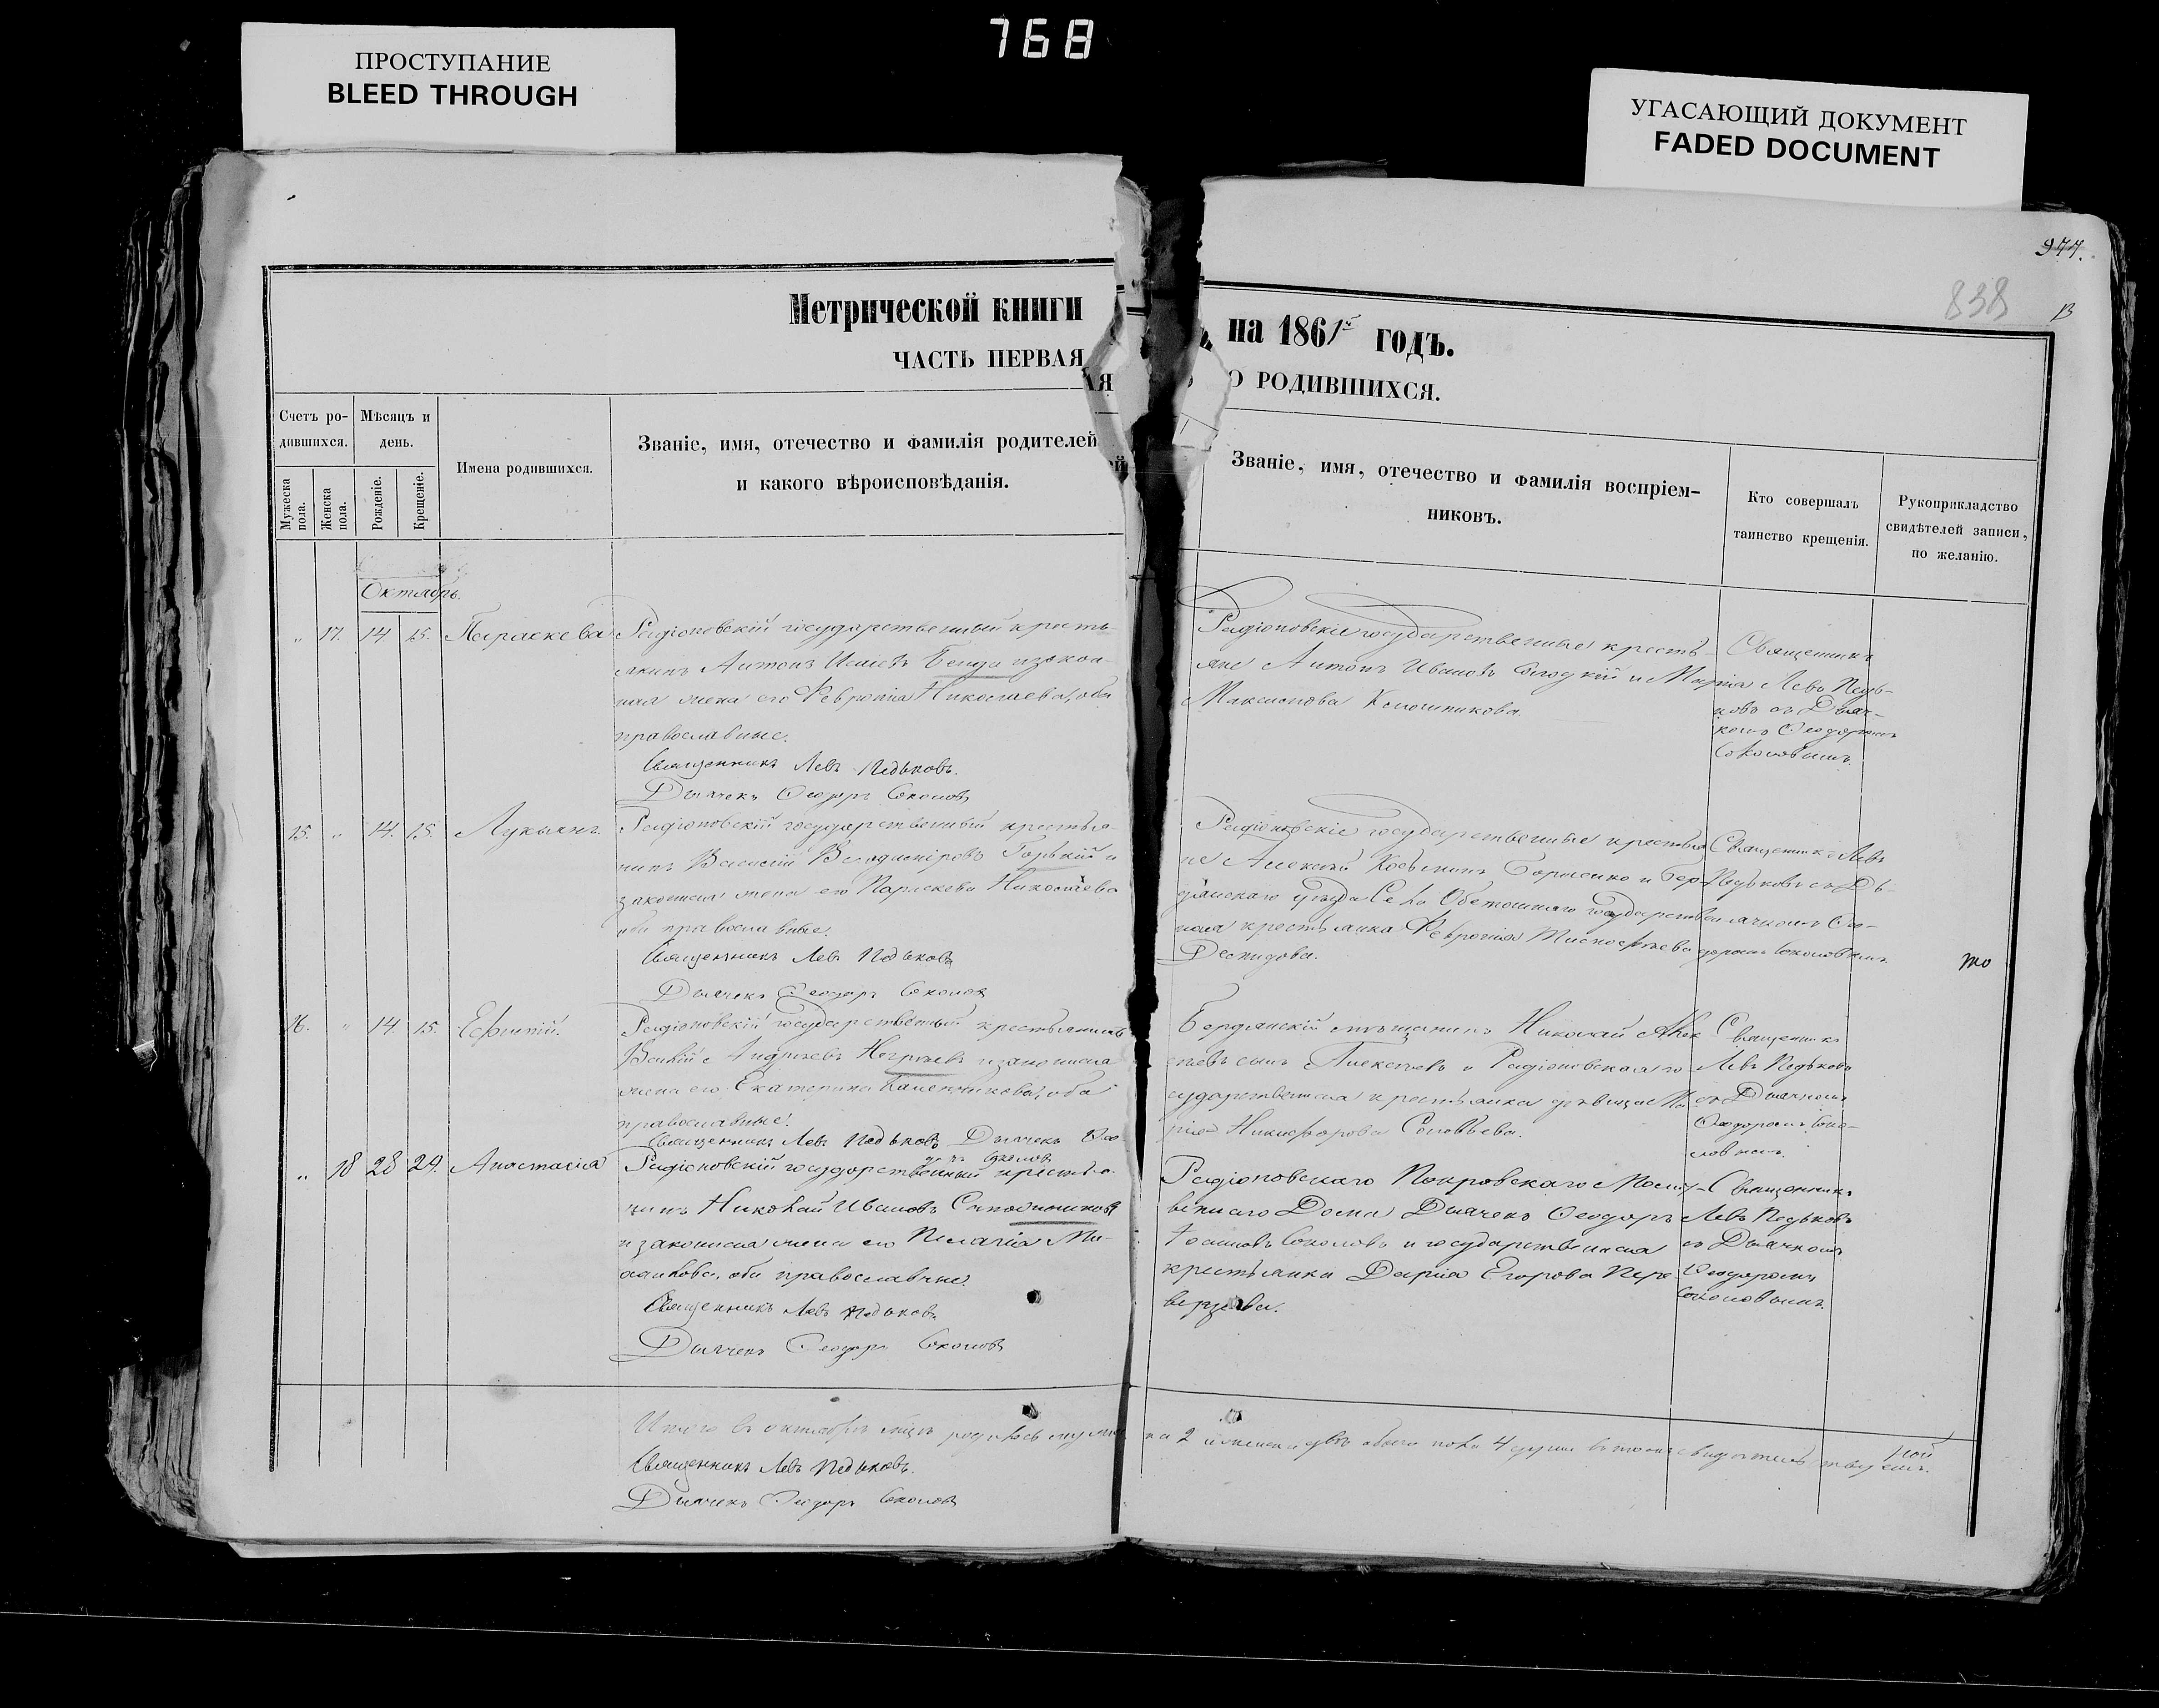 768
ПРОСТУПАНИЕ
BLEED THROUGH
УГАСАЮЩИЙ ДОКУМЕНТ
FADED DOCUMENT
977.
838
Метрической книги
на 1861й годъ.
ЧАСТЬ ПЕРВАЯ
О РОДИВШИХСЯ.
Счетъ ро-
дившихся.
Мѣсяцъ и
день.
Мужеска
пола.
Женска
пола.
Рожденіе.
Крещеніе.
Имена родившихся.
Званіе, имя, отечество и фамилія родителей
и какого вѣроисповѣданія.
Званіе, имя, отечество и фамилія воспріем-
никовъ.
Кто совершалъ
таинство крещенія.
Рукоприкладство
свидѣтелей записи,
по желанію.
Октябрь.
" 17. 14 15. Параскева
Радіоновскій государственный кресть-
янинъ Антонъ Бенда и закон-
ная жена его Февронія Николаева, оба
православные.
Священникъ Левъ Педьковъ.
Дьячекъ Ѳеодоръ Соколовъ
Радіоновскіе государственные кресть-
яне Антонъ Ивановъ и Марія
Максимова
Священникъ
Левъ Педь-
ковъ съ Дьяч-
комъ Ѳеодоромъ
Соколовымъ.
15. " 14. 15. Лукьянъ.
Радіоновскій государственный крестья-
нинъ Василій Владиміровъ Горькій и
законная жена его Параскева Николаева
оба православные.
Священникъ Левъ Педьковъ
Дьячекъ Ѳеодоръ Соколовъ
Радіоновскіе государственные крестья-
не Алексѣй Козьминъ Борисенко и Бер-
дянскаго уѣзда Села государствен-
ная крестьянка Февронія
Демидова.
Священникъ Левъ
Педьковъ съ Дь-
ячкомъ Ѳео-
доромъ Соколовымъ.
то
16. " 14 15. Ефимій.
Радіоновскій государственный крестьянинъ
Андреевъ и законная
жена его Екатерина оба
православные.
Священникъ Левъ Педьковъ Дьячекъ Ѳео-
доръ Соколовъ
Бердянскій мѣщанинъ Николай Алек-
сѣевъ сынъ Алексѣевъ и Радіоновская го-
сударственная крестьянка дѣвица Ма-
рія Никифорова Соловьева.
Священникъ
Левъ Педьковъ
съ Дьячкомъ
Ѳеодоромъ Соко-
ловымъ.
" 18 28 29. Анастасія
Радіоновскій государственный крестья-
нинъ Николай Ивановъ Сапожниковъ
и законная жена его Пелагія
оба православные.
Священникъ Левъ Педьковъ
Дьячекъ Ѳеодоръ Соколовъ
Радіоновскаго Покровскаго Молит-
веннаго Дома Дьячекъ Ѳеодоръ
Іоанновъ Соколовъ и государственная
крестьянка Дарія Егорова Пере-
верзева.
Священникъ
Левъ Педьковъ
съ Дьячкомъ
Ѳеодоромъ
Соколовымъ.
Итого въ октябрѣ мцѣ родилось мужеска 2 и женска двѣ обоего пола 4 души въ томъ свидѣтельствуемъ.
Священникъ Левъ Педьковъ.
Дьячекъ Ѳеодоръ Соколовъ